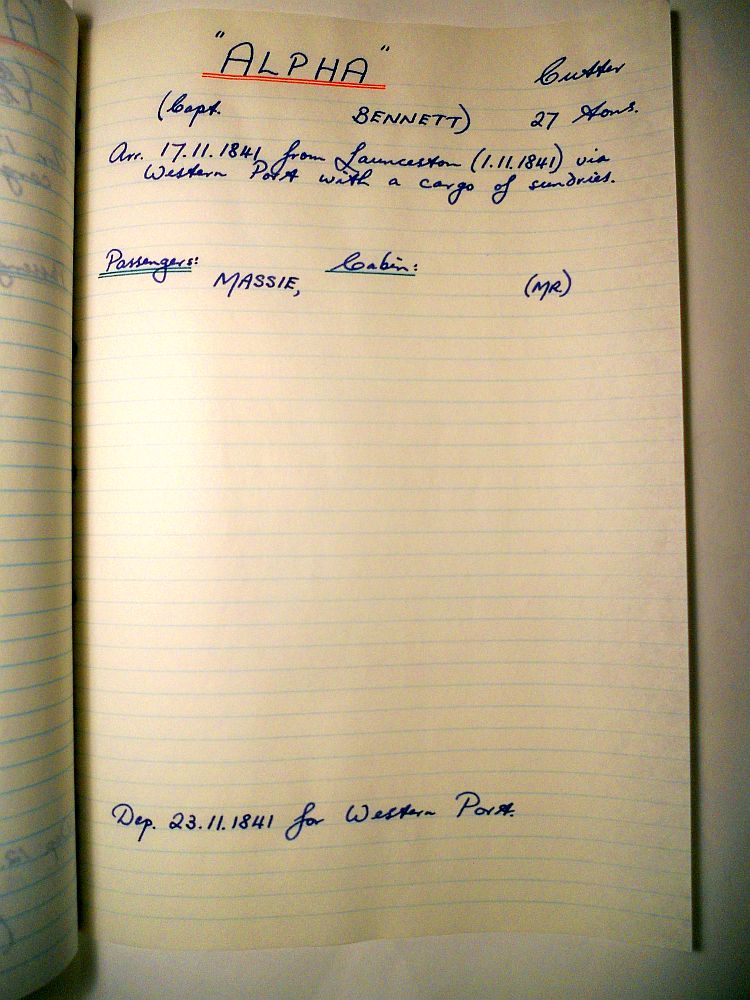 "ALPHA" Cutter
(Capt. BENNETT) 27 Tons.
Arr. 17.11.1841 from Launceston (1.11.1841) via
Western Port with a cargo of sundries.
Passengers: Cabin:
MASSIE, (MR)
Dep. 23.11.1841 for Western Port.